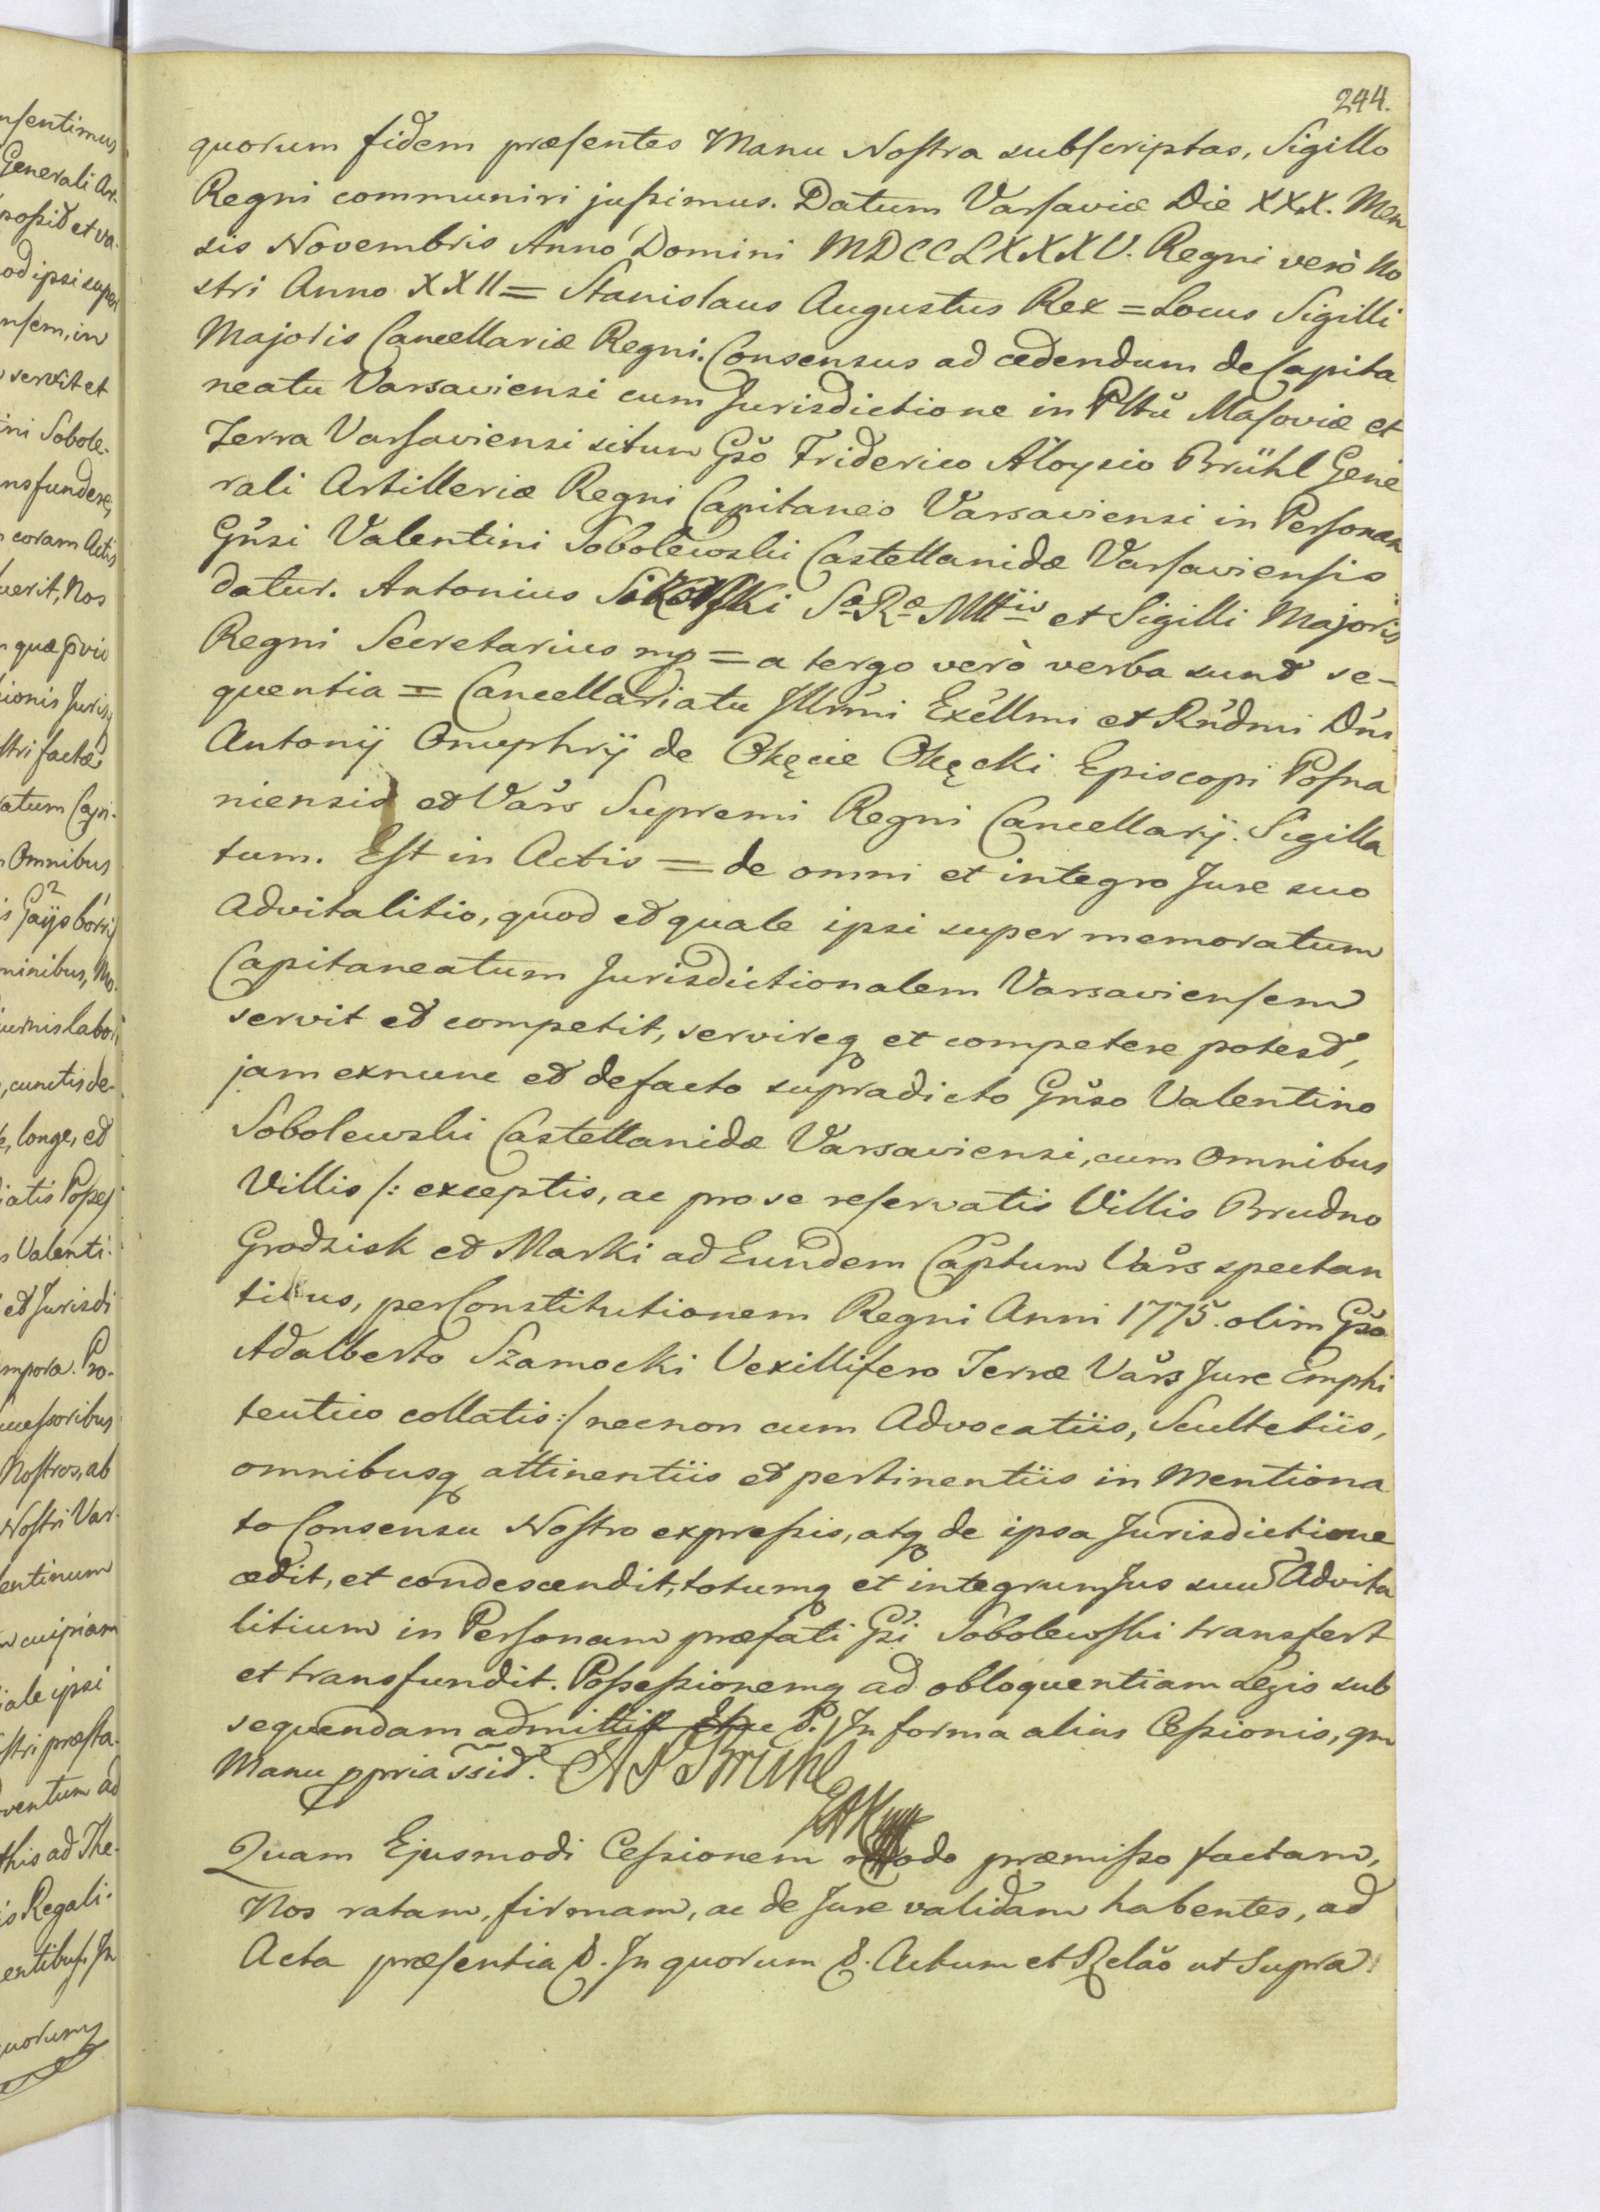 244.
quorum fidem præsentes Manu Nostra subscriptas, Sigillo
Regni communiri jussimus. Datum Varsaviæ Die XXX. Men
sis Novembris Anno Domini MDCCLXXXV. Regni verò No
stri Anno XXII = Stanislaus Augustus Rex = Locus Sigilli
Majoris Cancellariæ Regni. Consensus ad cedendum de Capita
neatu Varsaviensi cum Jurisdictione in Plttu Masoviæ et
Terra Varsaviensi situm Gso Friderico Aloysio Brühl Gene
rali Artilleriæ Regni Capitaneo Varsaviensi in Personam
Gnsi Valentini Sobolewski Castellanidæ Varsaviensis
datur. Antonius Sikorski Sæ Ræ Mttis et Sigilli Majoris
Regni Secretarius mp = a tergo verò verba sunt se-
quentia = Cancellariatu Illrmi Excellmi et Rndmi Dni
Antonij Onuphrij de Okęcie Okęcki Episcopi Posna
niensis et Vars Supremi Regni Cancellarij. Sigilla
tum. Est in Actis = de omni et integro Jure suo
Advitalitio, quod et quale ipsi super memoratum
Capitaneatum Jurisdictionalem Varsaviensem
servit et competit, servireq et competere potest,
jam exnunc et defacto supradicto Gnso Valentino
Sobolewski Castellanidæ Varsaviensi, cum Omnibus
Villis /: exceptis, ac pro se reservatis Villis Brudno
Grodzisk et Marki ad Eundem Captum Vars spectan
tibus, per Constitutionem Regni Anni 1775. olim Gso
Adalberto Szamocki Vexillifero Terræ Vars Jure Emphi
teutico collatis :/ necnon cum Advocatiis, Scultetiis,
omnibusq attinentiis et pertinentiis in Mentiona
to Consensu Nostro expressis, atq de ipsa Jurisdictione
cedit, et condescendit, totumq et integrum Jus suum Advita
litium in Personam præfati Gsi Sobolewski transfert
et transfundit. Possessionemq ad obloquentiam Legis sub
sequendam admittit In forma alias Cessionis, qm
Manu ppria ssit. A F Brühl
Quam Ejusmodi Cessionem modo præmisso factam,
Nos ratam, firmam, ac de Jure validam habentes, ad
Acta præsentia &. In quorum &. Actum et Relão ut Supra.